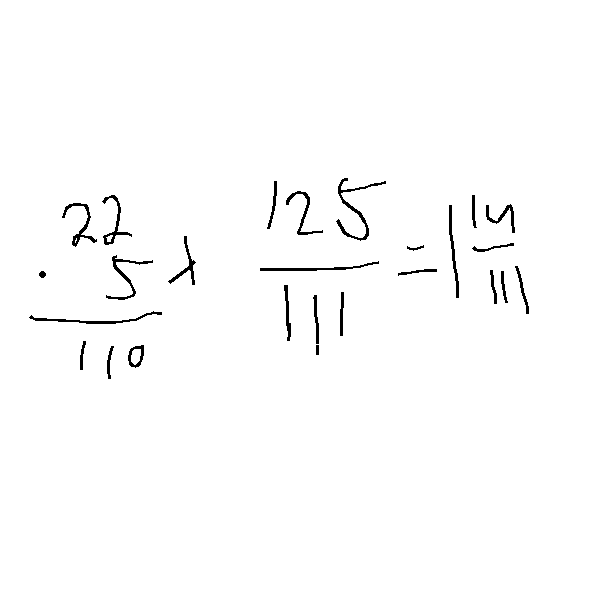 22
· 5 x
110
125/111 = 1 14/111